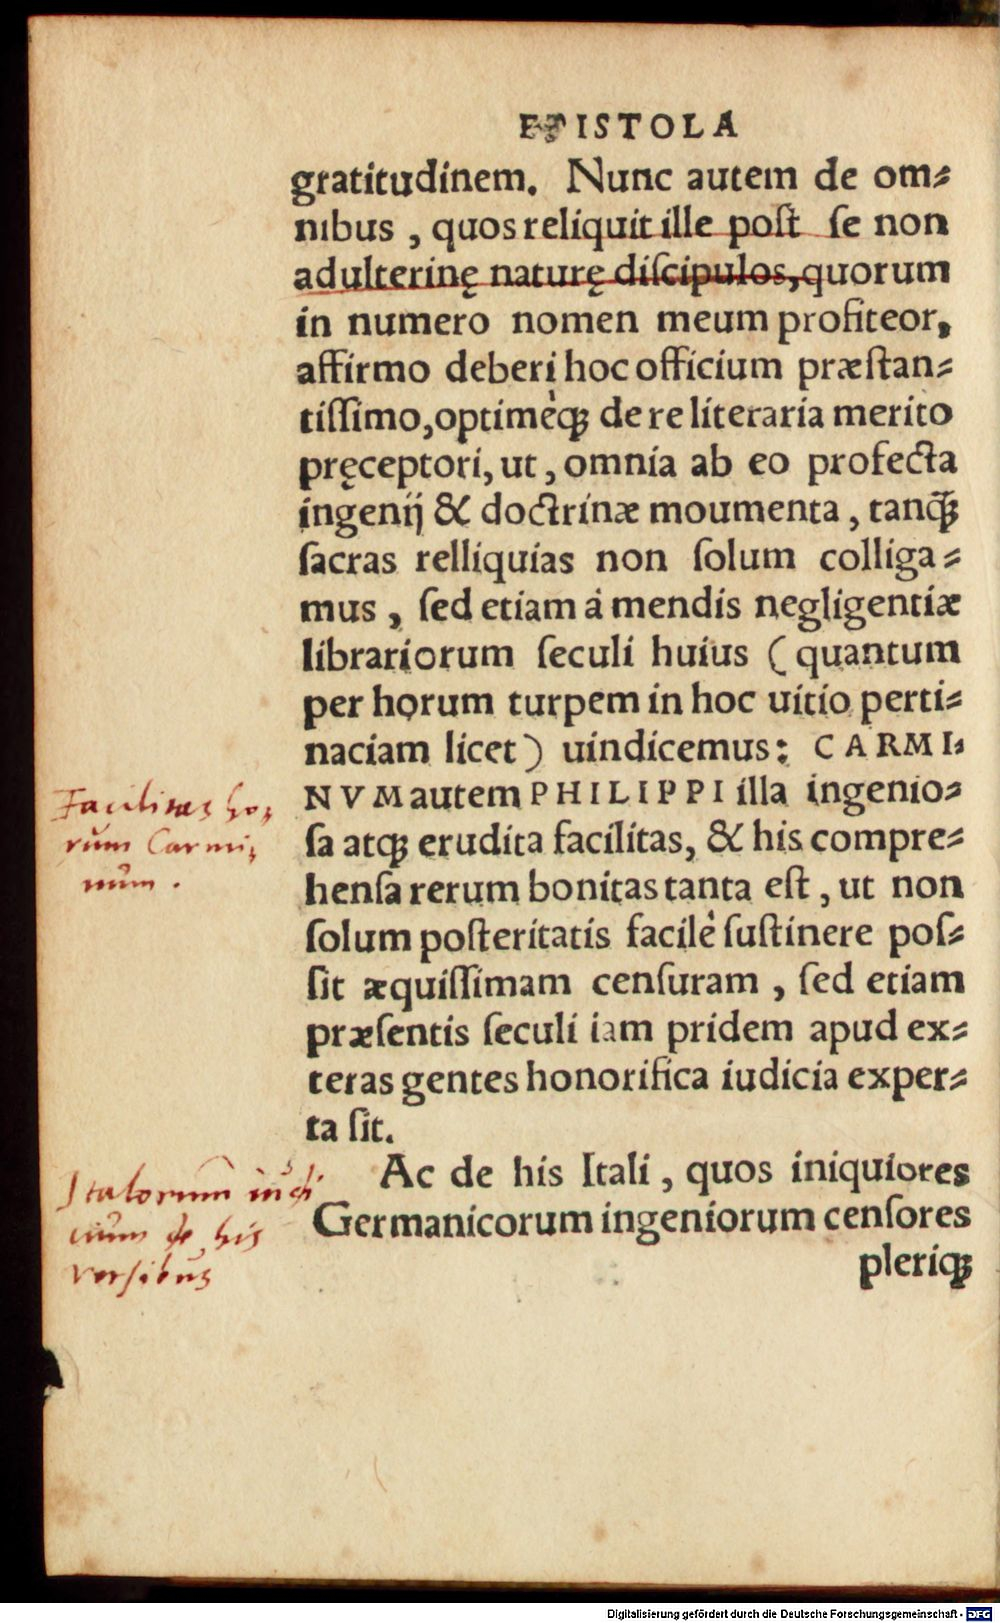 EPISTOLA
gratitudinem. Nunc autem de om⸗
nibus , quos reliquit ille poſt ſe non
adulterinę naturę diſcipulos, quorum
in numero nomen meum profiteor,
affirmo deberi hoc officium præſtan⸗
tiſſimo, optimèq́ꝫ de re literaria merito
pręceptori, ut , omnia ab eo profecta
ingenij & doctrinæ moumenta , tanq̃ꝫ
ſacras relliquias non ſolum colliga⸗
mus , ſed etiam à mendis negligentiæ
librariorum ſeculi huius ( quantum
per horum turpem in hoc uitio perti⸗
naciam licet ) uindicemus: CARMI⸗
NVM autem PHILIPPI illa ingenio⸗
ſa atqꝫ erudita facilitas, & his compre⸗
henſa rerum bonitas tanta eſt , ut non
ſolum poſteritatis facilè ſuſtinere poſ⸗
ſit æquiſſimam cenſuram , ſed etiam
præſentis ſeculi iam pridem apud ex⸗
teras gentes honorifica iudicia exper⸗
ta ſit.
Facilitas ho⸗
rum Carmi⸗
num .
Ac de his Itali , quos iniquiores
Germanicorum ingeniorum cenſores
pleriqꝫ
Italorum iudi
cium de his
versibus
Digitalisierung gefördert durch die Deutsche Forschungsgemeinschaft - DFG